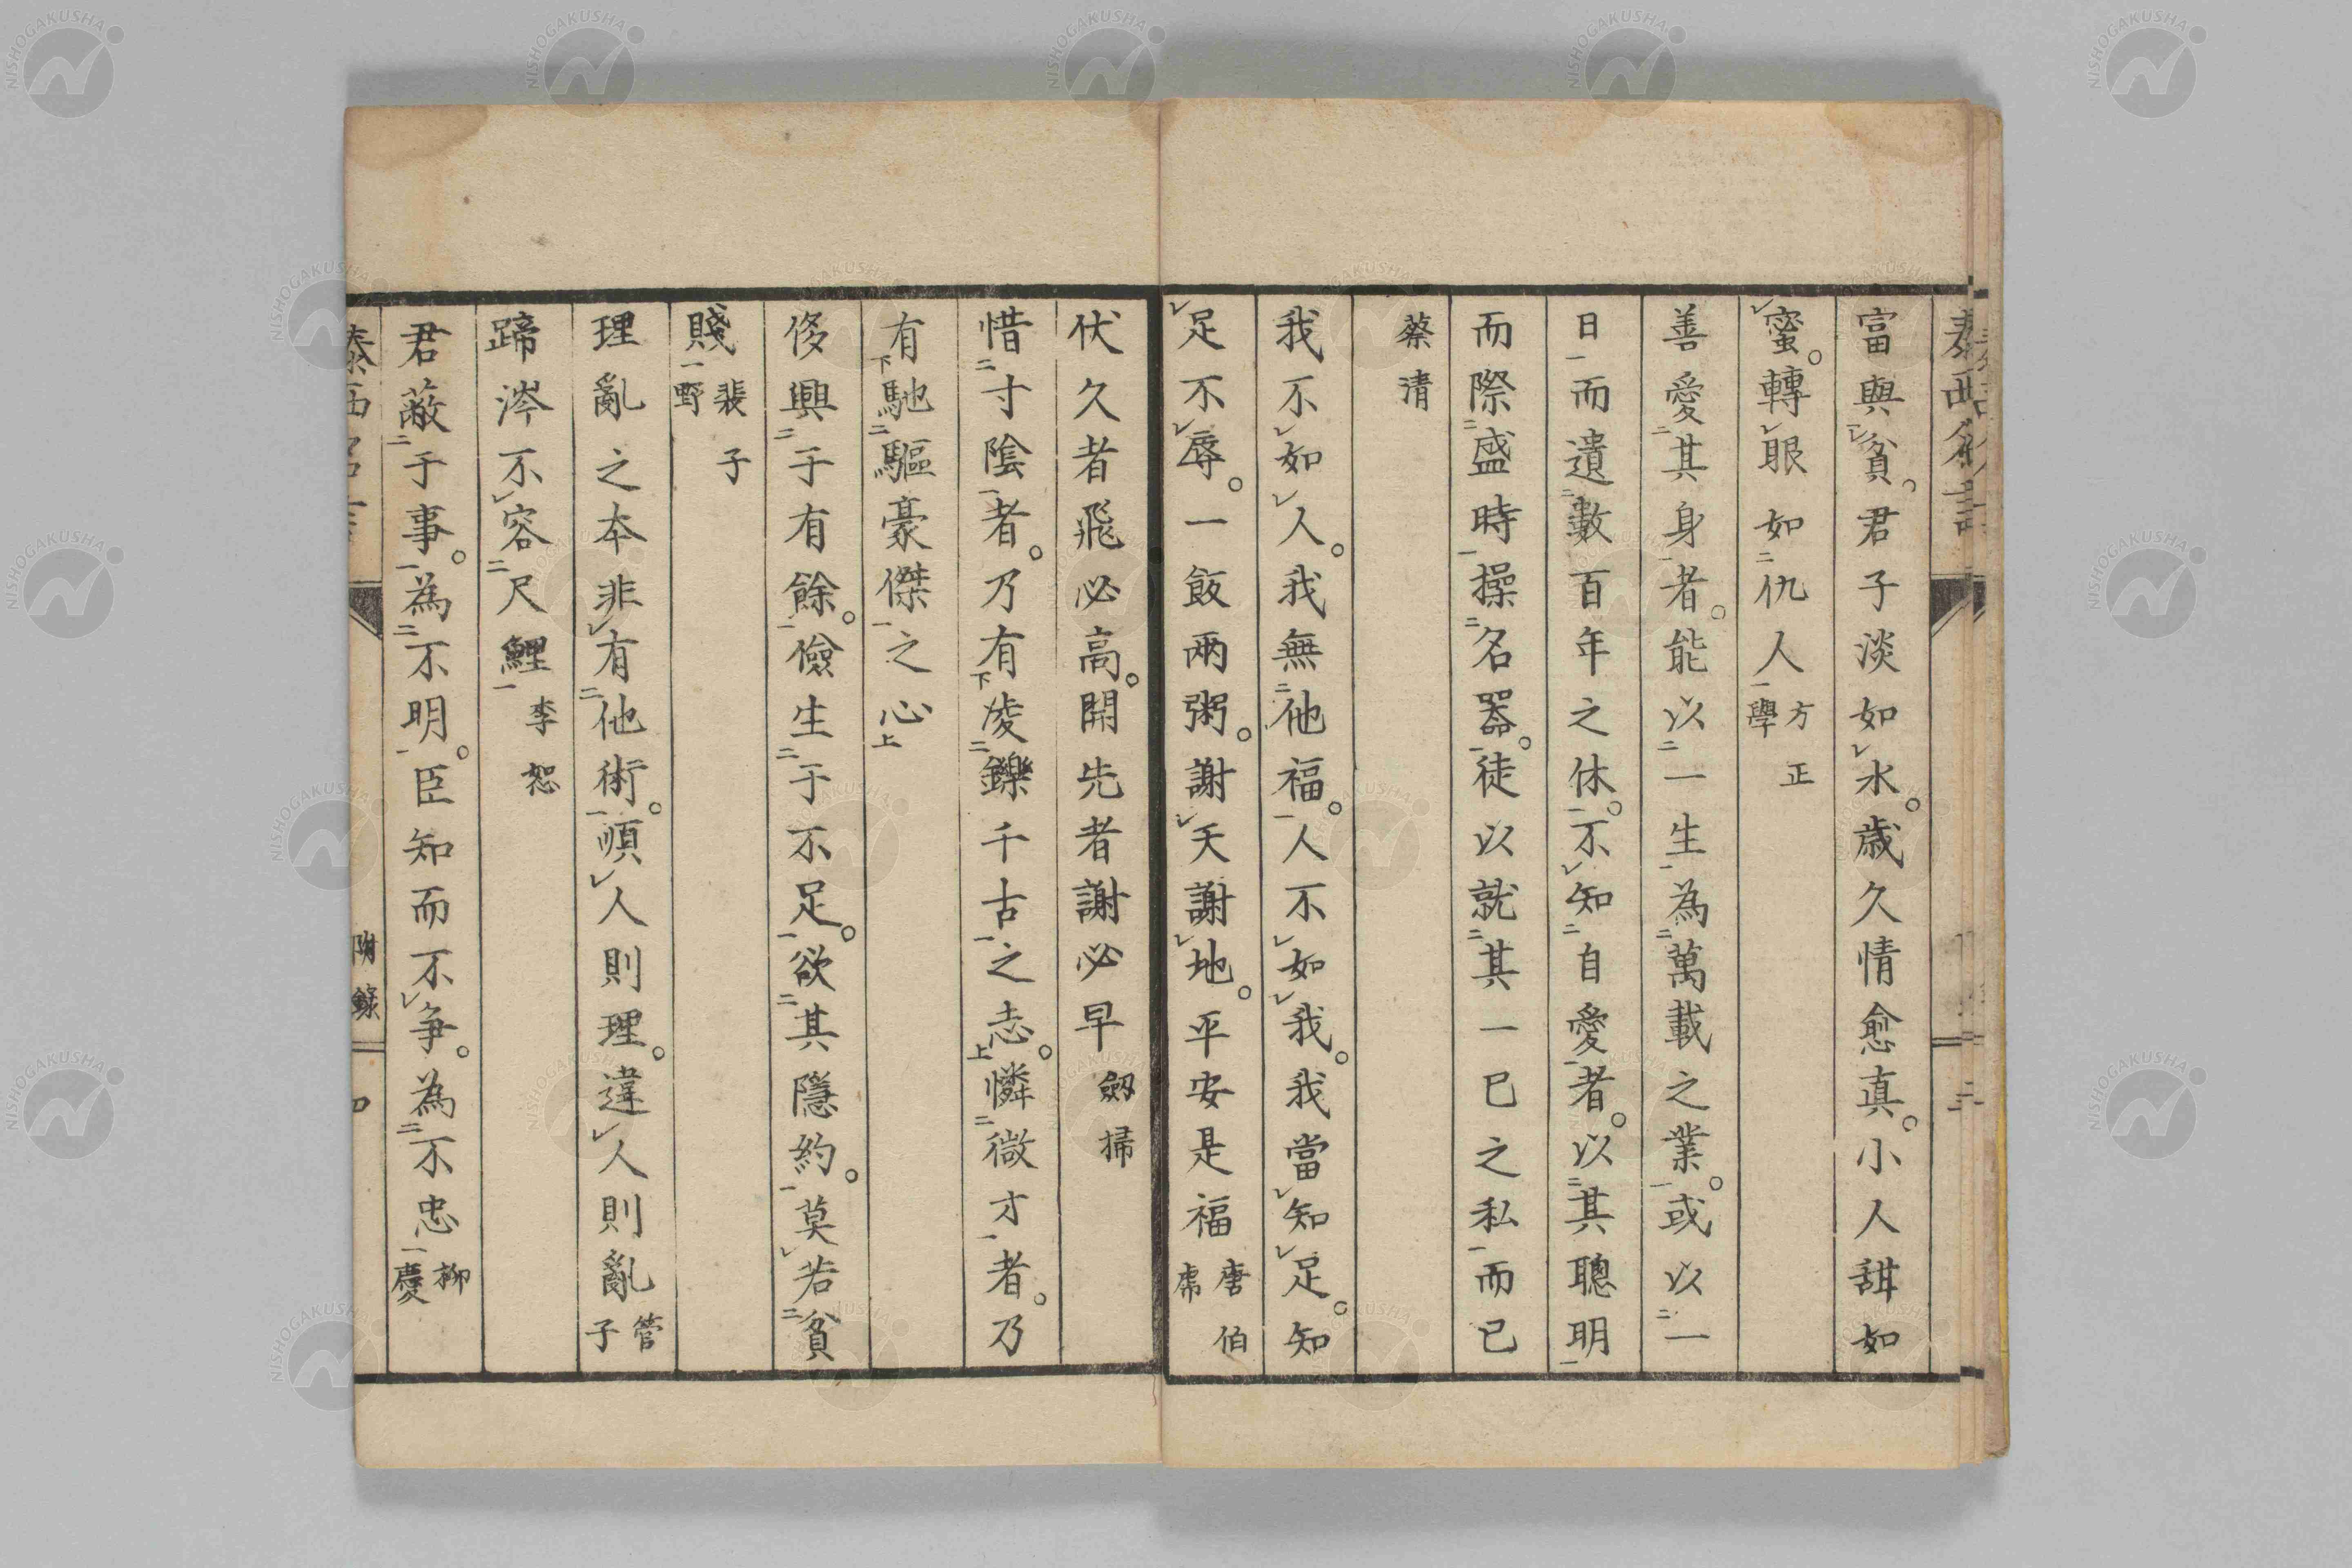 富與貧。君子淡如水。歳久情愈真。小人甜如
蜜。轉眼如仇人 方正學
善愛其身者。能以一生為萬載之業。或以一
日而遺數百年之休。不知自愛者。以其聰明
而際盛時操名器。徒以就其一已之私而已
蔡清
我不如人。我無他福。人不如我。我當知足。知
足不辱。一飯兩粥。謝天謝地。平安是福 唐伯虎
伏久者飛必高。開先者謝必早 劔掃
惜寸陰者。乃有凌鑠千古之志。憐微才者。乃
有馳驅豪傑之心
侈興于有餘。儉生于不足。欲其隱約。莫若貧
賤 裴子野
理亂之本非有他術。順人則理。違人則亂 管子
蹄涔不容尺鯉 李恕
君蔽于事。為不明。臣知而不爭。為不忠 柳慶
泰西名
附錄
四
NISHOGAKUSHA